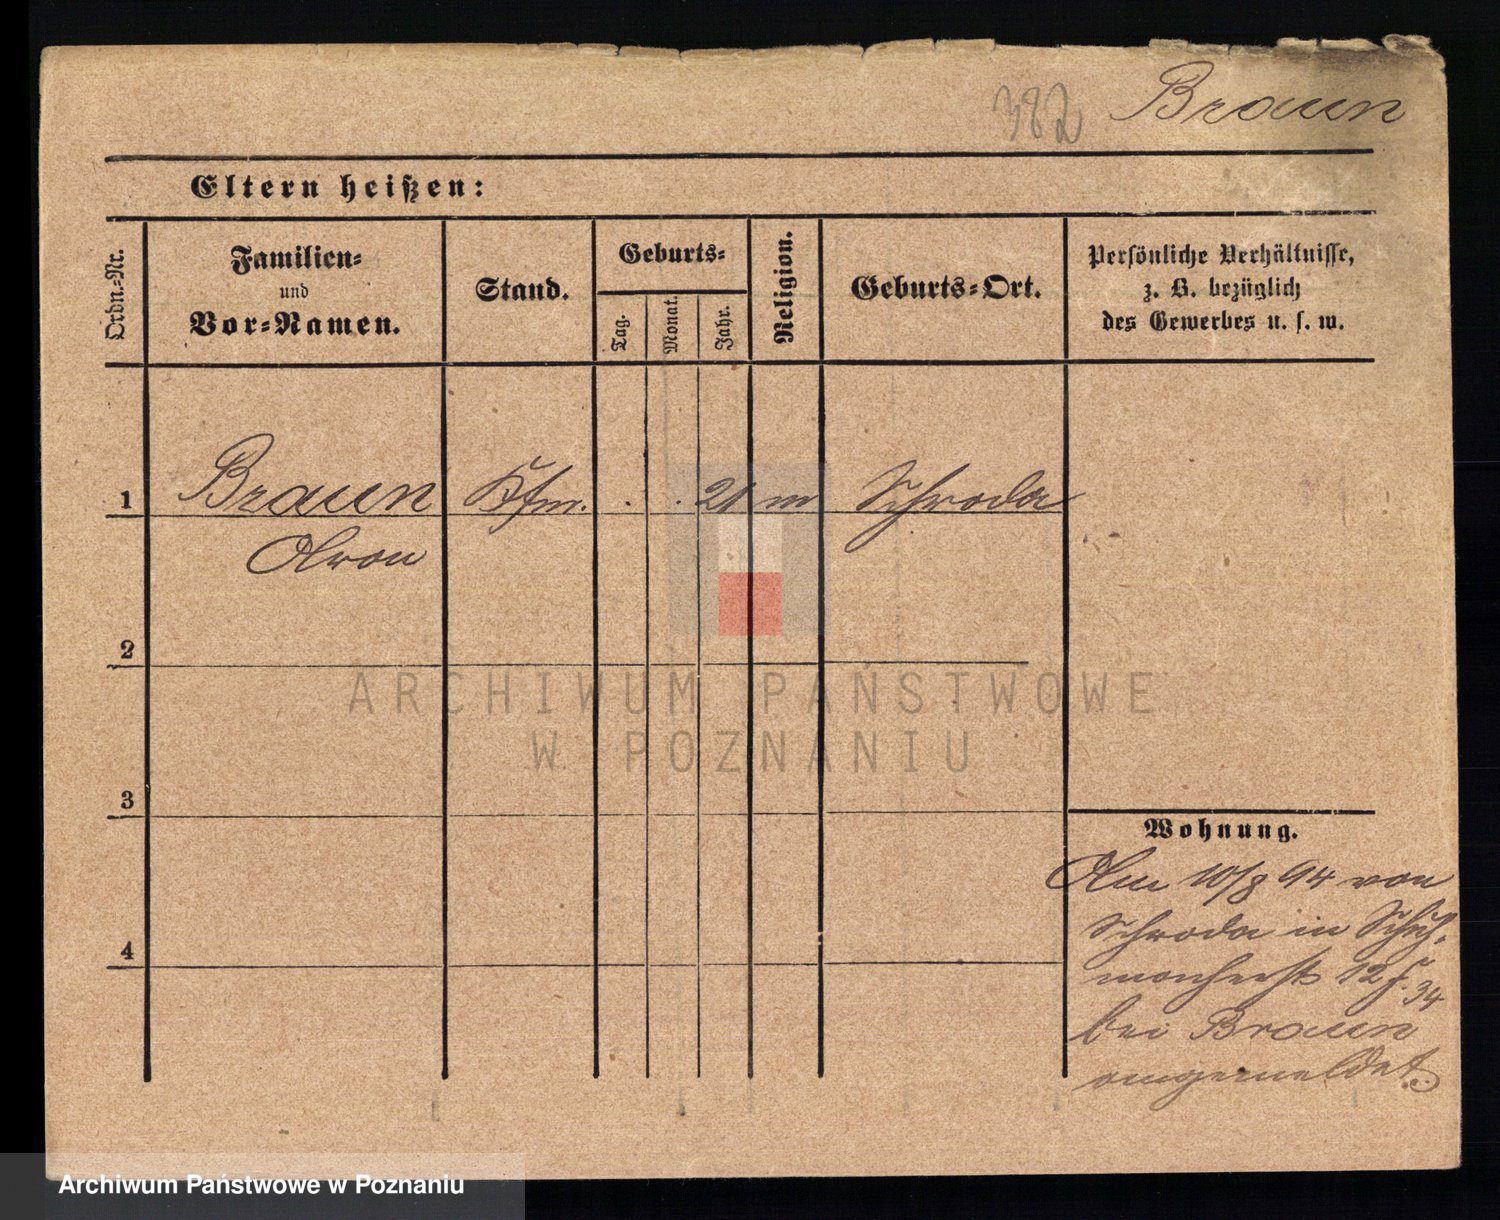 382 Braun
Eltern heißen:
Ordn.-Nr.
Familien-
und
Vor-Namen.
Stand.
Geburts-
Tag.
Monat.
Jahr.
Religion.
Geburts-Ort.
Persönliche Verhältnisse,
z. B. bezüglich
des Gewerbes u. s. w.
1 Braun Kfm. . . 21 m Schroda
Aron
2
3
4
Wohnung.
Am 10/8 94 von
Schroda in Schuh-
macherstr 12 J. 34
bei Braun
angemeldet.
ARCHIWUM PAŃSTWOWE
W POZNANIU
Archiwum Państwowe w Poznaniu